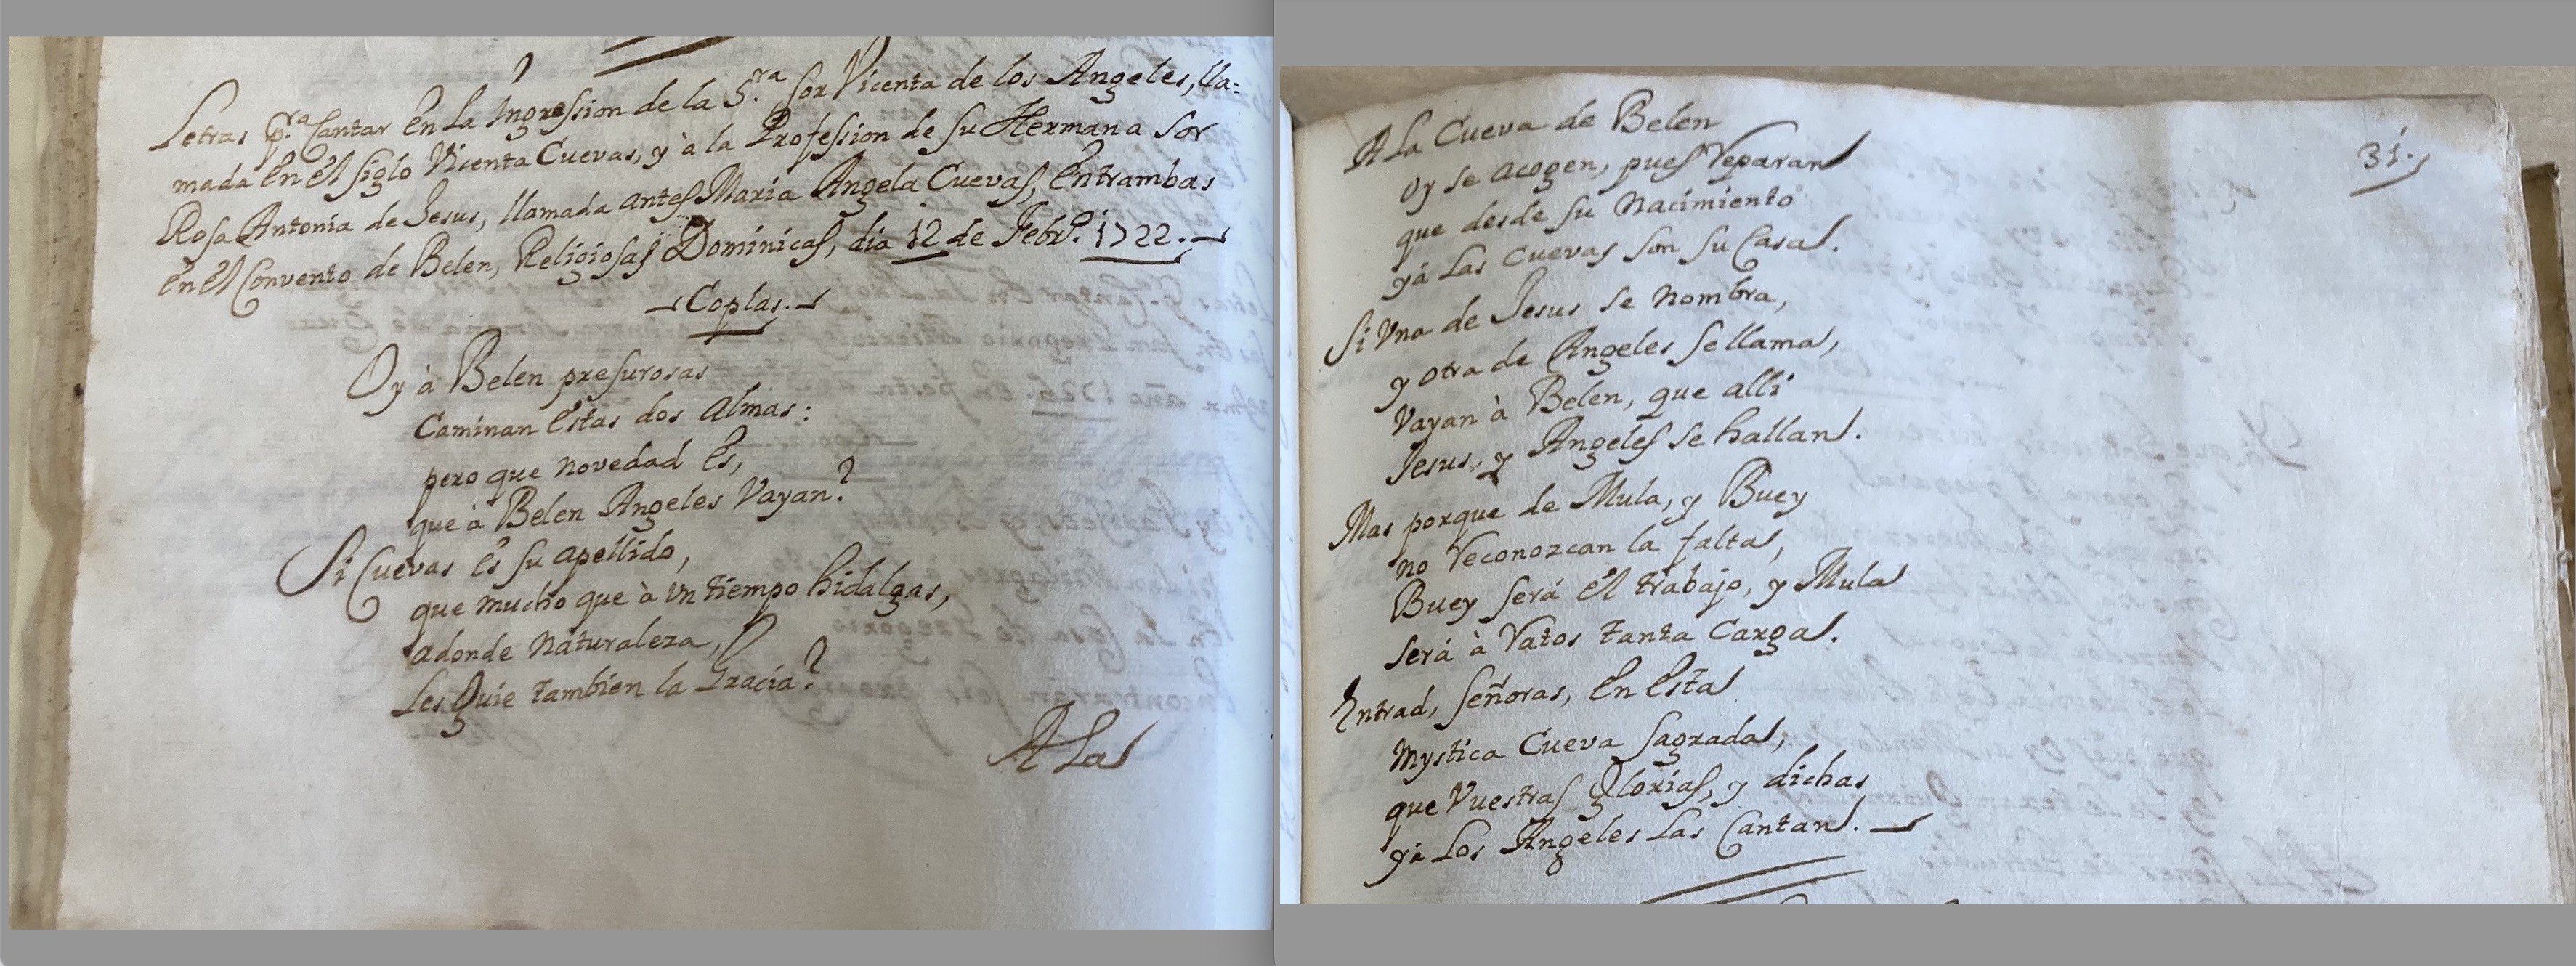 Letras p.ra Cantar en la Ingression de la S.ra Sor Vicenta de los Angeles, lla=
mada en el siglo Vicenta Cuevas, y à la Profession de su Hermana Sor
Rosa Antonia de Jesus, llamada antes Maria Angela Cuevas, entrambas
en el Convento de Belen, Religiosas Dominicas, dia 12 de Febr.o 1722.
Coplas.
Oy à Belen presurosas
Caminan estas dos almas:
pero que novedad es,
que à Belen Angeles vayan?
Si Cuevas es su apellido,
que mucho que à un tiempo hidalgas,
adonde naturaleza,
les guie tambien la Gracia?
A la
A la Cueva de Belen
oy se acogen, pues reparan
que desde su Nacimiento
yá las Cuevas son su Casa.
Si una de Jesus se nombra,
y otra de Angeles se llama,
vayan à Belen, que alli
Jesus, y Angeles se hallan.
Mas porque de Mula, y Buey
no reconozcan la falta,
Buey será el trabajo, y Mula
será à ratos tanta Carga.
Entrad, Señoras, en esta
Mystica Cueva sagrada,
que vuestras glorias, y dichas
yá los Angeles las Cantan.
31.